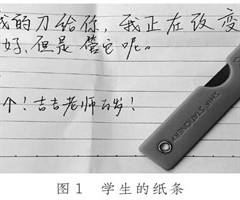 我的刀给你，我正在改变
好，但是管它呢。
个！吉吉老师万岁！
SHARP STATIONERY
图1 学生的纸条